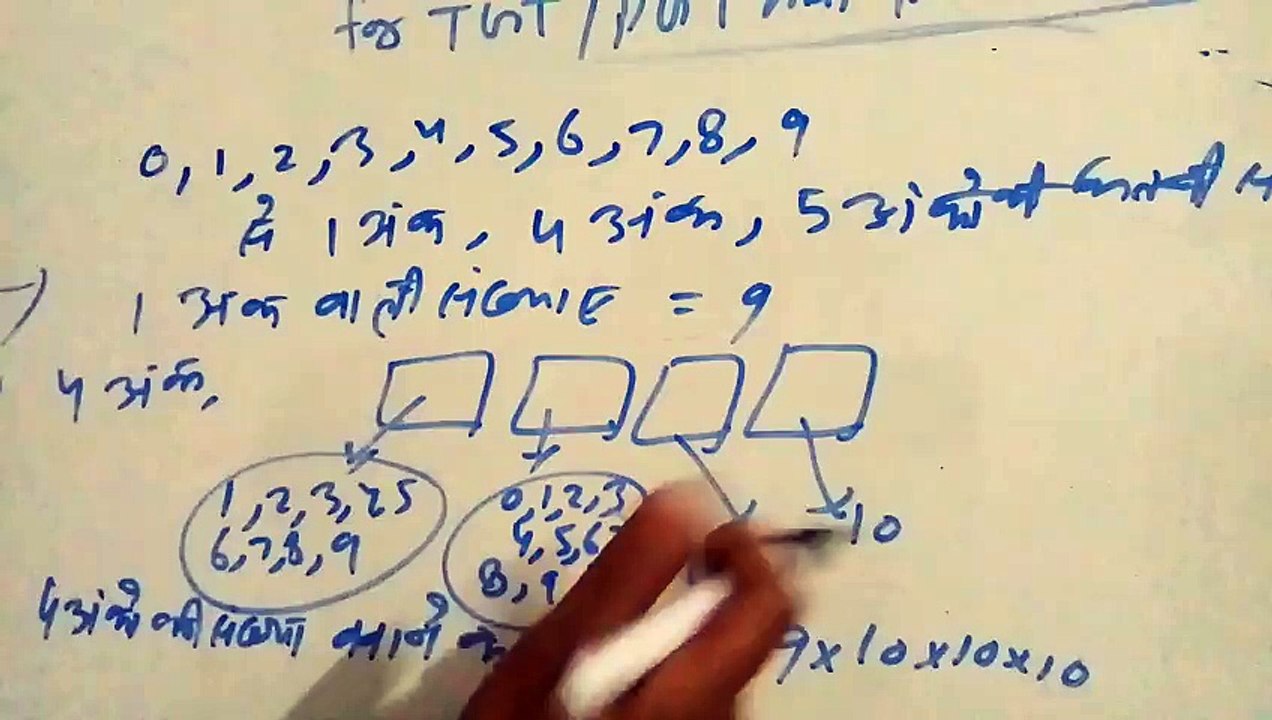 for TGT / PGT
0, 1, 2, 3, 4, 5, 6, 7, 8, 9
से 1 अंक, 4 अंक, 5 अंको की
1 अंक वाली संख्याए = 9
4 अंक,
1, 2, 3, 4 5
6, 7, 8, 9
0, 1, 2, 3
4, 5, 6
8, 9
10
4 अंको की संख्या बनाने के
9 x 10 x 10 x 10